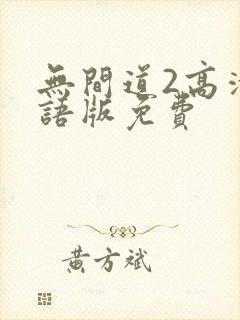 無間道2高清
語版免費
黃方斌